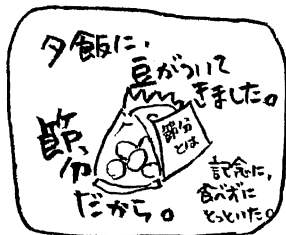 夕飯に、
豆がついて
きました。
節分
とは
節分
だから。
記念に、
食べずに
とっといた。